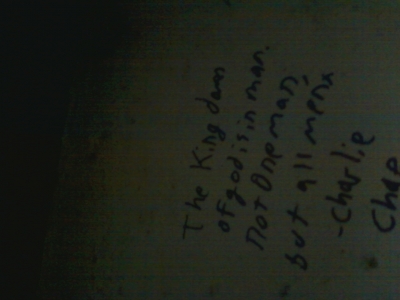 The Kingdom
of god is in man.
not one man
but all men
-Charlie
Chap